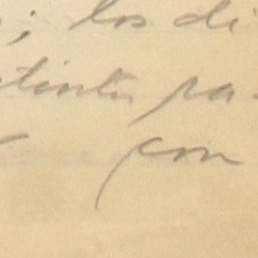 ; los di
tintos pa-
con